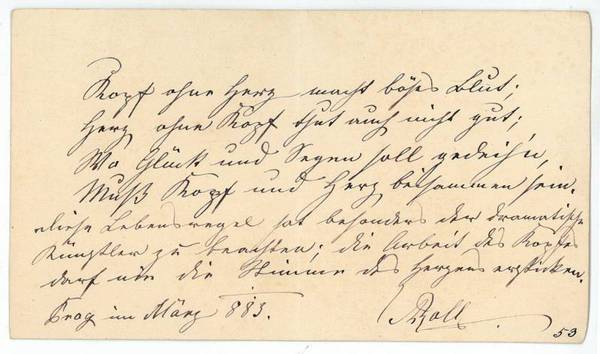 Kopf ohne Herz macht böses Blut;
Herz ohne Kopf thut auch nicht gut;
Wo Glück und Segen soll gedeih'n,
Muß Kopf und Herz beisammen sein.
Diese Lebensregel hat besonders der dramatische
Künstler zu beachten; die Arbeit des Kopfes
darf nie die Stimme des Herzens ersticken.
Prag im März 883.
Roll
53